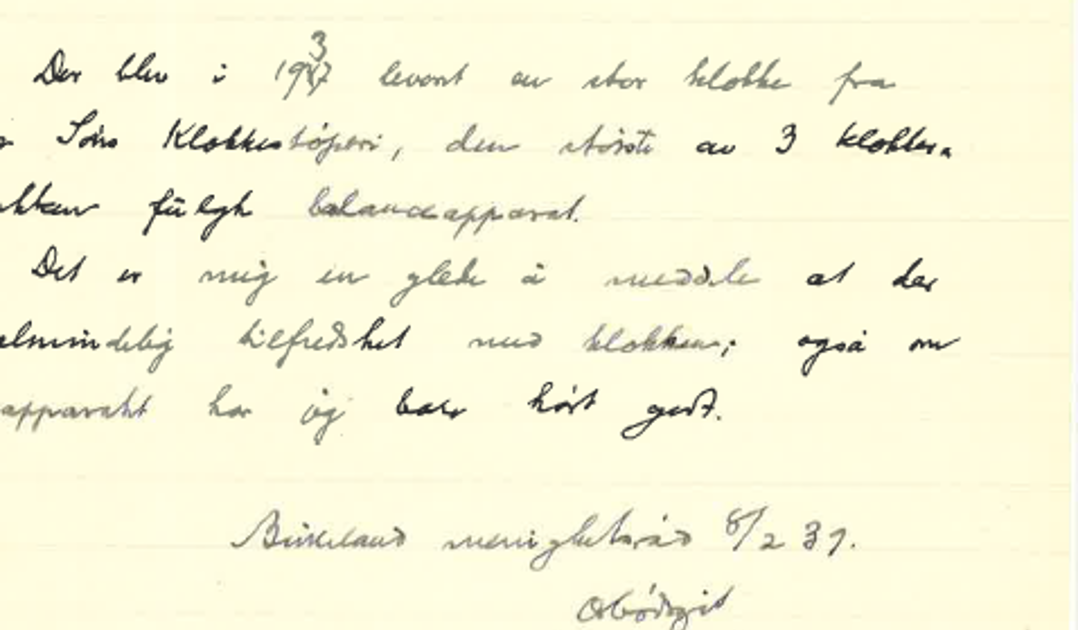 Der blev i 1937 levert en stor klokke fra
Søns Klokkestøperi, den største av 3 klokker.
fulgte balanceapparat.
Det er mig en glede å meddele at der
almindelig tilfredshet med klokken; også om
apparatet har jeg bare hørt godt.
Birkeland menighetsråd 8/2 37.